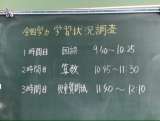 全国学力・学習状況調査
1時間目 国語 9:40~10:25
2時間目 算数 10:45~11:30
3時間目 児童質問紙 11:50~12:10